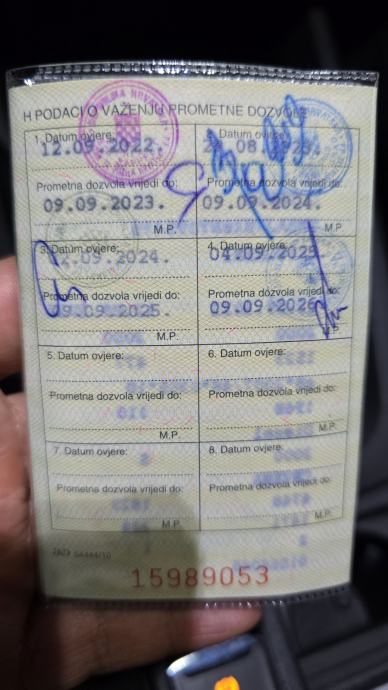 H PODACI O VAŽENJU PROMETNE DOZVOLE
1. Datum ovjere:
12.09.2022.
Prometna dozvola vrijedi do:
09.09.2023.
M.P.
Datum ovjere:
08.
Prometna dozvola vrijedi do:
09.09.2024.
M.P.
3. Datum ovjere:
.09.2024.
Prometna dozvola vrijedi do:
09.09.2025.
M.P.
4. Datum ovjere:
04.09.2025.
Prometna dozvola vrijedi do:
09.09.2026.
5. Datum ovjere:
Prometna dozvola vrijedi do:
M.P.
6. Datum ovjere:
Prometna dozvola vrijedi do:
M.P.
7. Datum ovjere:
Prometna dozvola vrijedi do:
M.P.
8. Datum ovjere:
Prometna dozvola vrijedi do:
M.P.
15989053